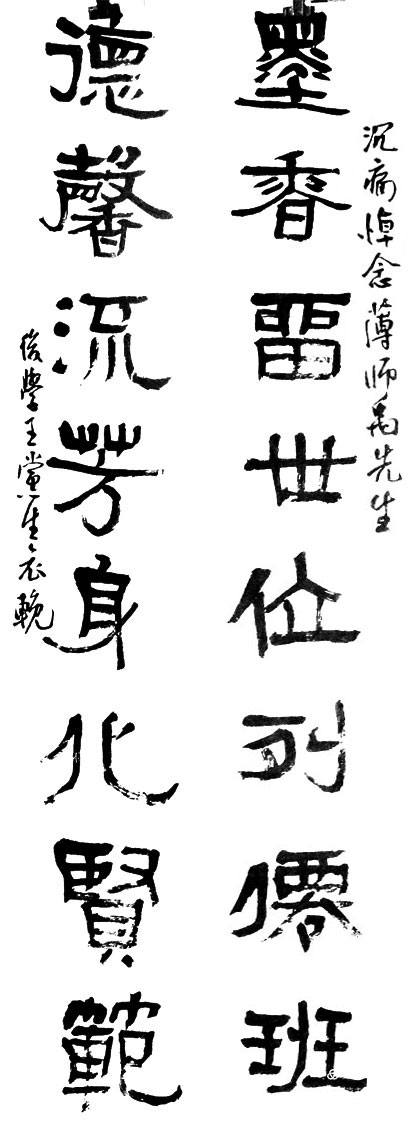 沉痛悼念薄师禹先生
墨香畱世位列僊班
德馨流芳身化賢範
後學王黨生哀輓